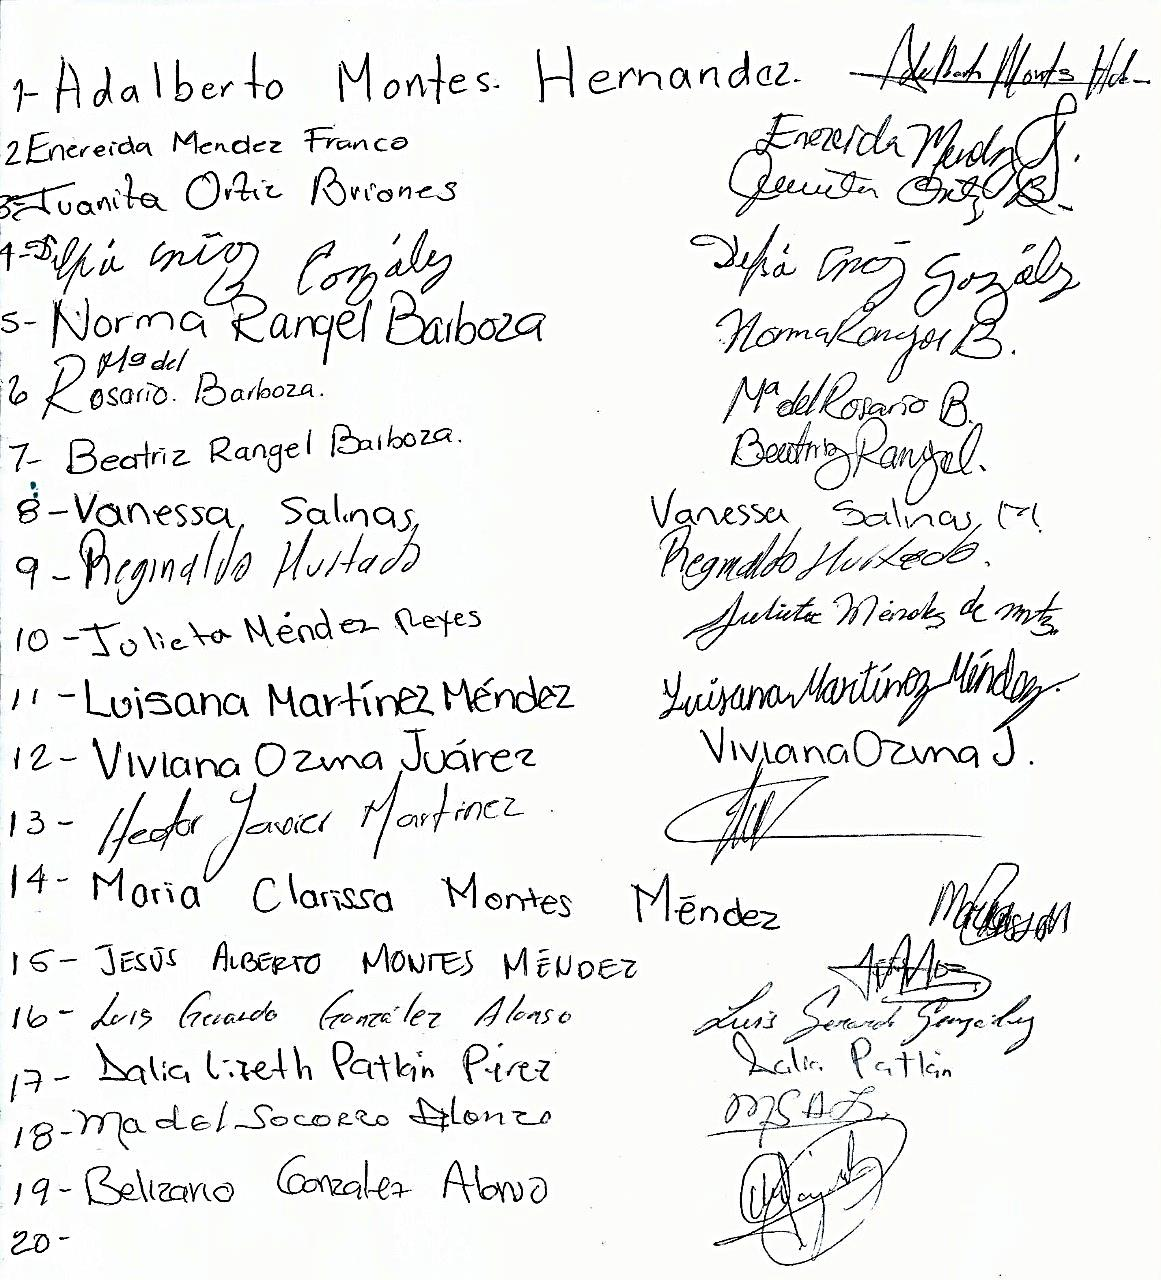 1- Adalberto Montes. Hernandez. Adalberto Montes Hdz
2 Enereida Mendez Franco Enereida Mendez F.
3- Juanita Ortiz Briones Juanita Ortiz B.
4- González González
5- Norma Rangel Barboza Norma Rangel B.
6 Ma del Rosario. Barboza. Ma del Rosario B.
7- Beatriz Rangel Barboza. Beatriz Rangel.
8- Vanessa Salinas Vanessa Salinas M.
9- Reginaldo Hurtado Reginaldo Hurtado.
10- Julieta Méndez Reyes Julieta Méndez de mtz.
11- Luisana Martínez Méndez Luisana Martínez Méndez
12- Viviana Ozuna Juárez Viviana Ozuna J.
13- Hector Javier Martinez
14- Maria Clarissa Montes Méndez
15- JESÚS ALBERTO MONTES MÉNDEZ
16- Luis Gerardo González Alonso Luis Gerardo González
17- Dalia Lizeth Patlán Pérez Dalia Patlán
18- Ma del Socorro Alonzo
19- Belizario Gonzalez Alonso
20-